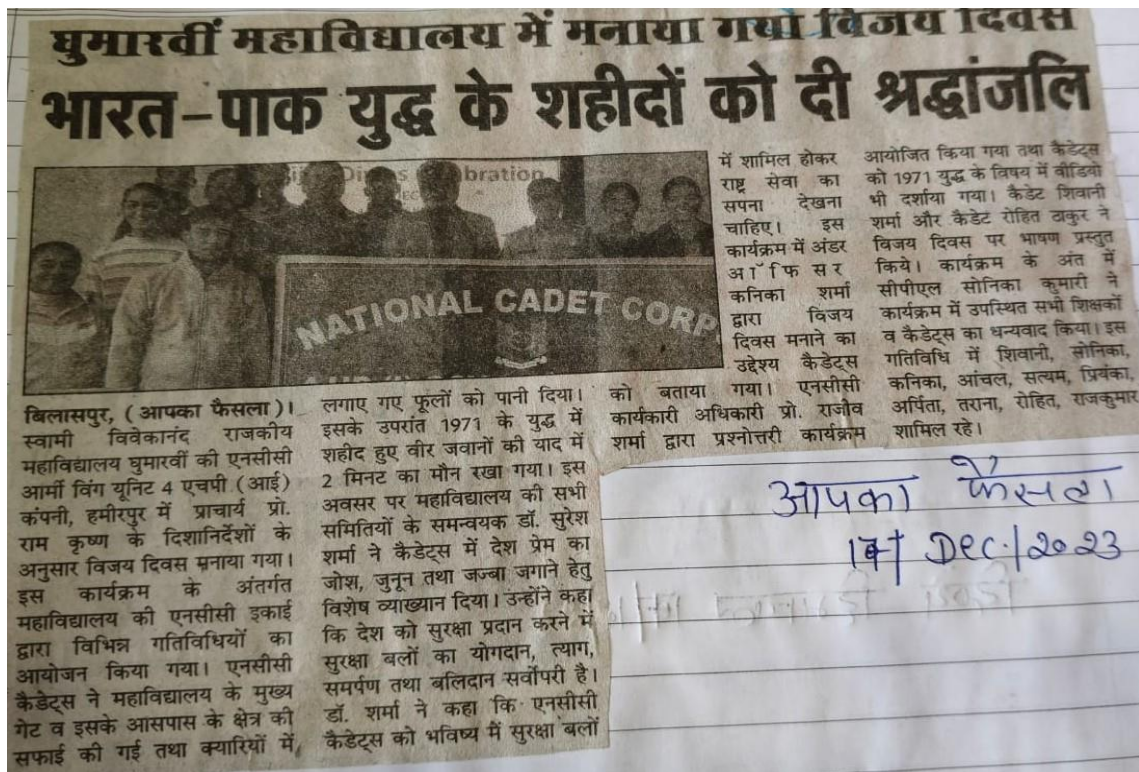 घुमारवीं महाविद्यालय में मनाया गया विजय दिवस
भारत-पाक युद्ध के शहीदों को दी श्रद्धांजलि
NATIONAL CADET CORP
बिलासपुर, (आपका फैसला)।
स्वामी विवेकानंद राजकीय
महाविद्यालय घुमारवीं की एनसीसी
आर्मी विंग यूनिट 4 एचपी (आई)
कंपनी, हमीरपुर में प्राचार्य प्रो.
राम कृष्ण के दिशानिर्देशों के
अनुसार विजय दिवस मनाया गया।
इस कार्यक्रम के अंतर्गत
महाविद्यालय की एनसीसी इकाई
द्वारा विभिन्न गतिविधियों का
आयोजन किया गया। एनसीसी
कैडेट्स ने महाविद्यालय के मुख्य
गेट व इसके आसपास के क्षेत्र की
सफाई की गई तथा क्यारियों में
लगाए गए फूलों को पानी दिया।
इसके उपरांत 1971 के युद्ध में
शहीद हुए वीर जवानों की याद में
2 मिनट का मौन रखा गया। इस
अवसर पर महाविद्यालय की सभी
समितियों के समन्वयक डॉ. सुरेश
शर्मा ने कैडेट्स में देश प्रेम का
जोश, जुनून तथा जज्बा जगाने हेतु
विशेष व्याख्यान दिया। उन्होंने कहा
कि देश को सुरक्षा प्रदान करने में
सुरक्षा बलों का योगदान, त्याग,
समर्पण तथा बलिदान सर्वोपरी है।
डॉ. शर्मा ने कहा कि एनसीसी
कैडेट्स को भविष्य में सुरक्षा बलों
में शामिल होकर
राष्ट्र सेवा का
सपना देखना
चाहिए। इस
कार्यक्रम में अंडर
ऑफिसर
कनिका शर्मा
द्वारा विजय
दिवस मनाने का
उद्देश्य कैडेट्स
को बताया गया। एनसीसी
कार्यकारी अधिकारी प्रो. राजीव
शर्मा द्वारा प्रश्नोत्तरी कार्यक्रम
आयोजित किया गया तथा कैडेट्स
को 1971 युद्ध के विषय में वीडियो
भी दर्शाया गया। कैडेट शिवानी
शर्मा और कैडेट रोहित ठाकुर ने
विजय दिवस पर भाषण प्रस्तुत
किये। कार्यक्रम के अंत में
सीपीएल सोनिका कुमारी ने
कार्यक्रम में उपस्थित सभी शिक्षकों
व कैडेट्स का धन्यवाद किया। इस
गतिविधि में शिवानी, सोनिका,
कनिका, आंचल, सत्यम, प्रियंका,
अर्पिता, तराना, रोहित, राजकुमार
शामिल रहे।
आपका फैसला
Dec./2023